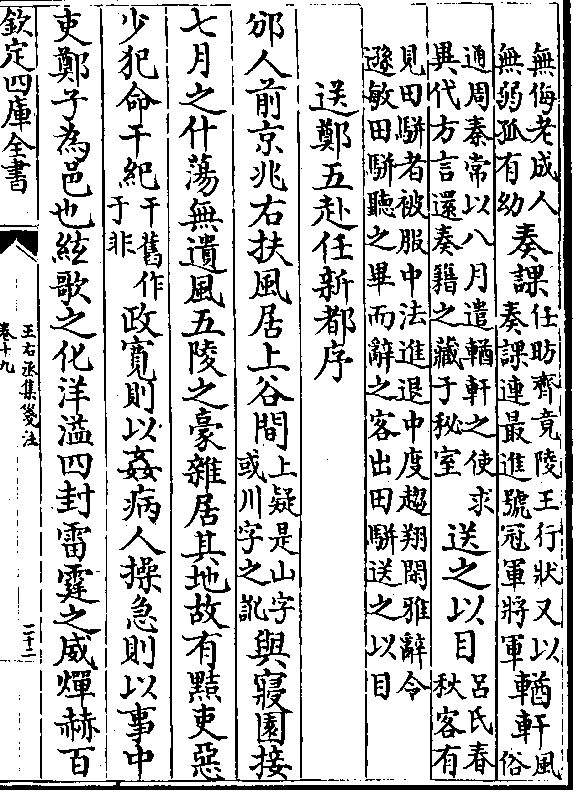 無侮老成人
無弱孤有幼
奏課
任昉齊竟陵王行狀又以
奏課連最進號冠軍將軍
輶軒
風
俗
通周秦常以八月遣輶軒之使求
異代方言還奏籍之藏于秘室
送之以目
呂氏春
秋客有
見田駢者被服中法進退中度趨翔閑雅辭令
遜敏田駢聽之畢而辭之客出田駢送之以目
送鄭五赴任新都序
邠人前京兆右扶風居上谷間
上疑是山字
或川字之訛
與寢園接
七月之什蕩無遺風五陵之豪雜居其地故有黠吏惡
少犯命干紀
干舊作
于非
政寬則以姦病人操急則以事中
吏鄭子為邑也絃歌之化洋溢四封雷霆之威燀赫百
欽定四庫全書
王右丞集箋注
卷十九
二十二